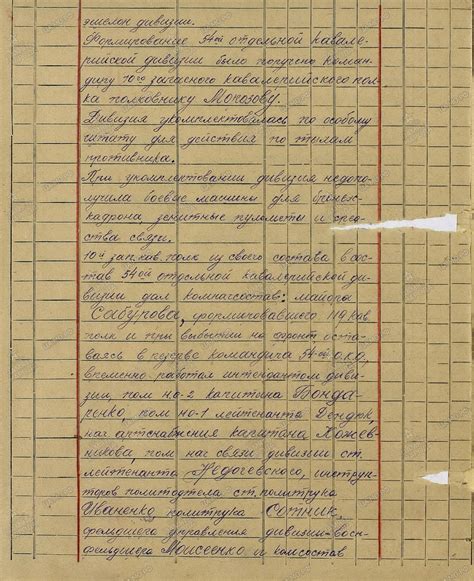 эшелон дивизии.
Формирование 54ой отдельной кавале-
рийской дивизии было поручено коман-
диру 10го запасного кавалерийского пол-
ка полковнику Мокозову.
Дивизия укомплектовалась по особому
штату для действия по тылам
противника.
При укомплектовании дивизия недопо-
лучила боевые машины для бронеэс-
кадрона, зенитные пулеметы и сред-
ства связи.
10й зап. кав. полк из своего состава в сос-
тав 54ой отдельной кавалерийской ди-
визии дал комначсостав: майора
Сабурова, формировавшего 119 кав.
полк и при выбытии на фронт оста-
ваясь в резерве командира 54ой о.к.д.,
временно работал интендантом диви-
зии, пом но-2 капитана Бонда-
ренко, пом но-1 лейтенанта
нач артснабжения капитана Кожев-
никова, пом нач связи дивизии ст.
лейтенанта Недочевского, инструк-
торов политотдела ст. политрука
Иваненко, политрука Сотник,
фельдшера управления дивизии-воен-
фельдшера Моисеенко и комсостав